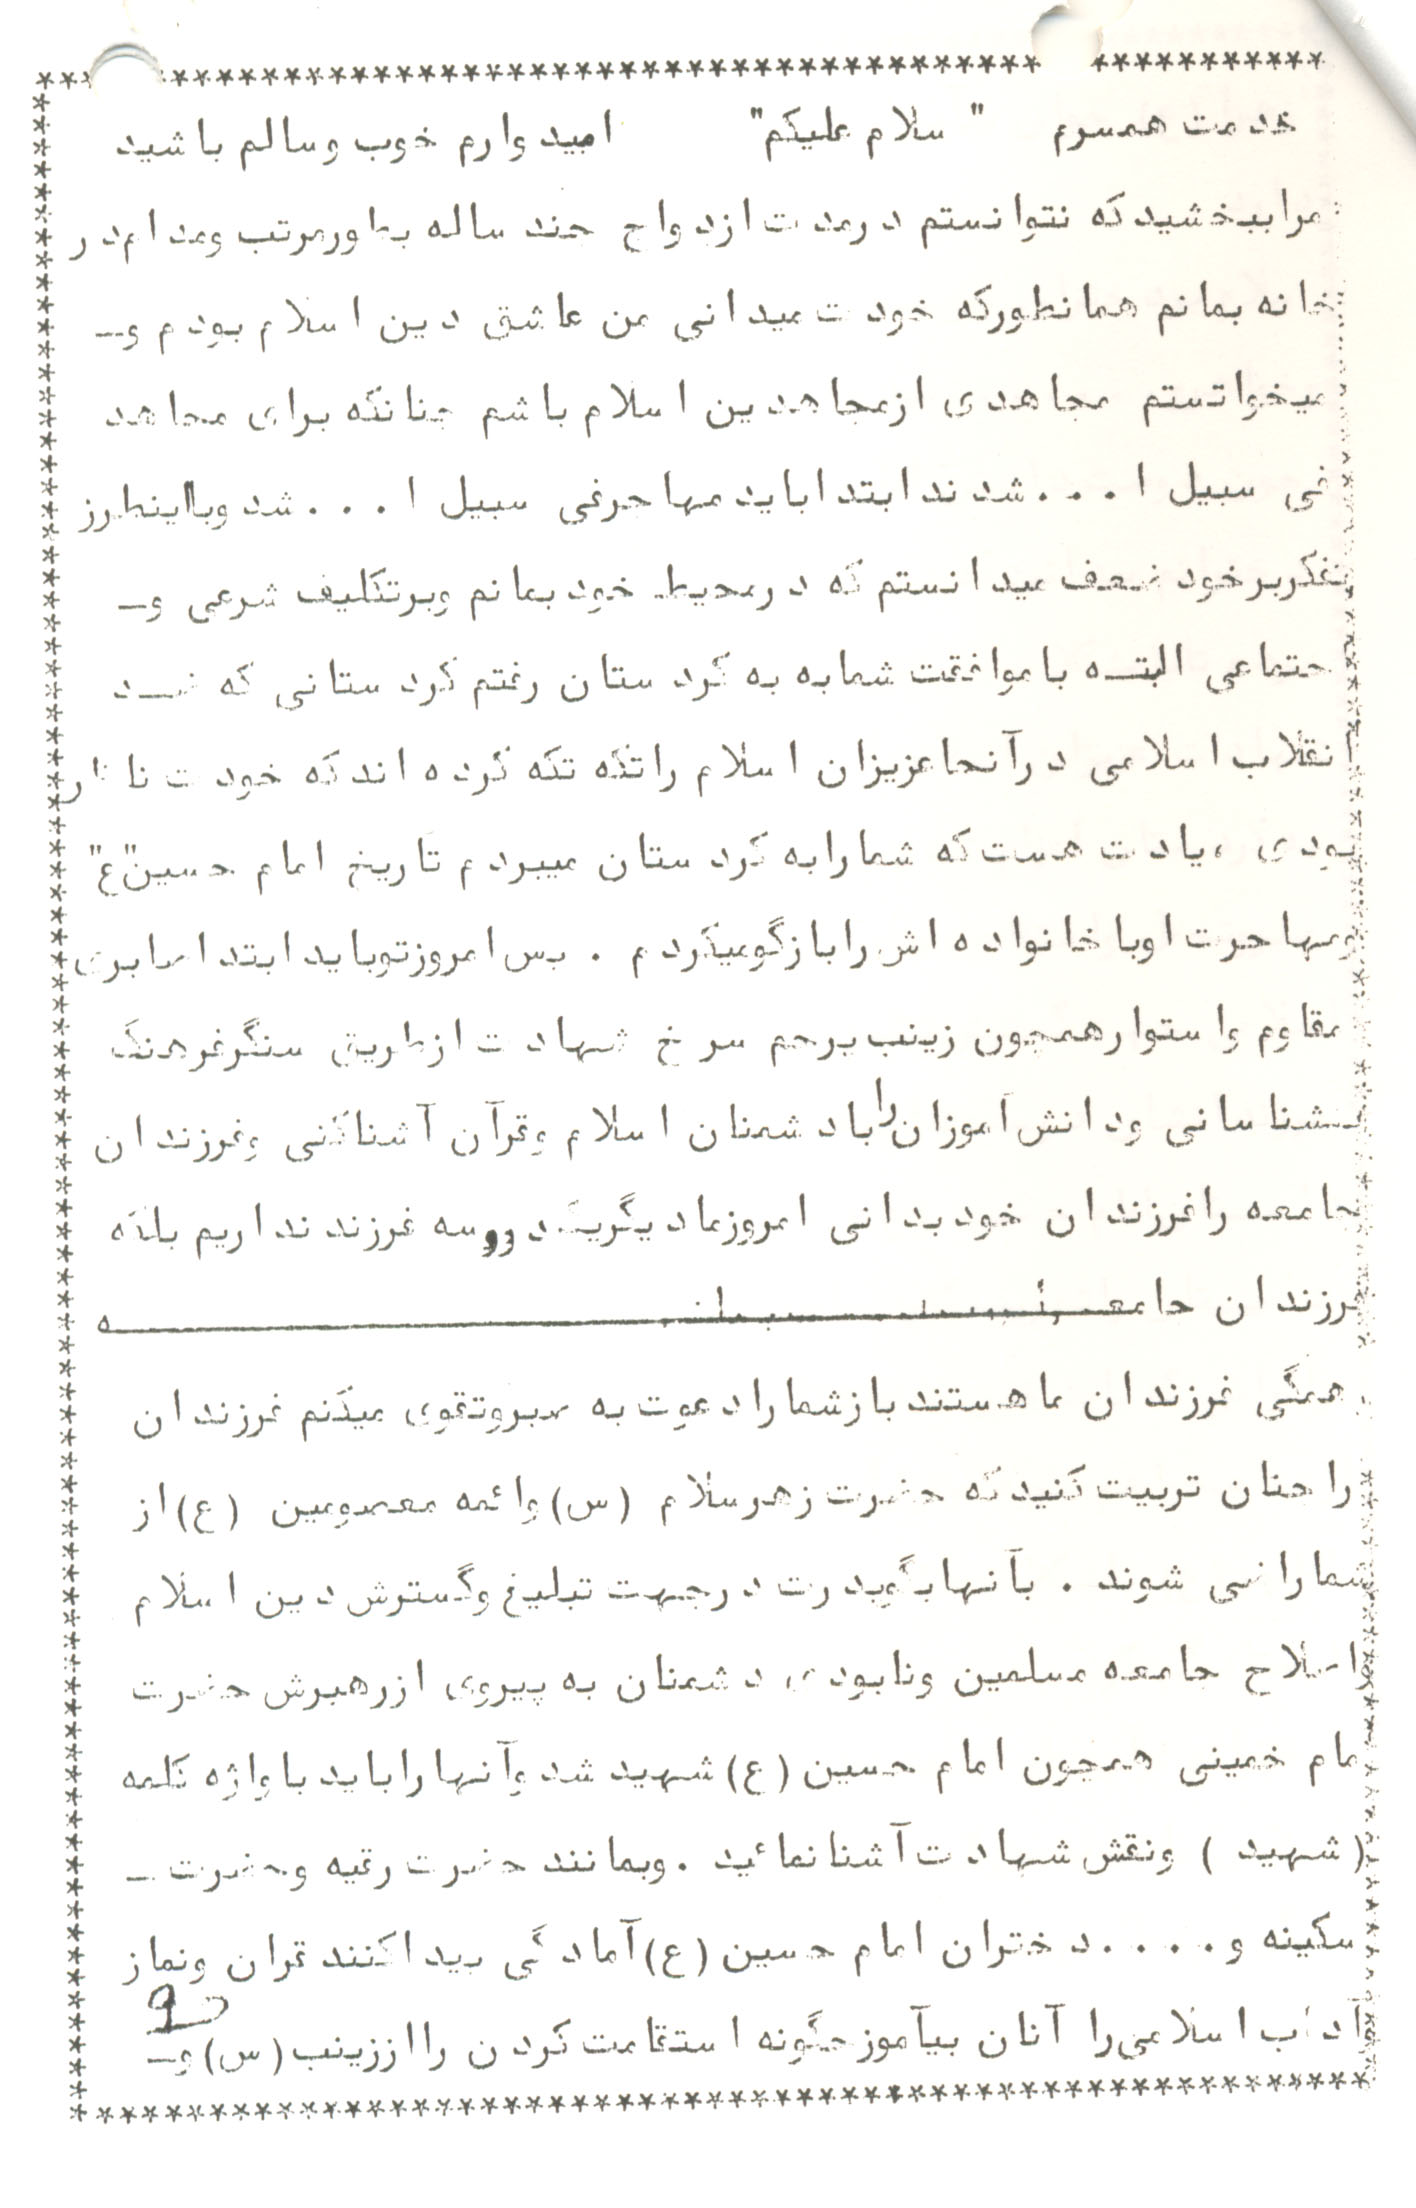 خدمت همسرم "سلام علیکم" امیدوارم خوب وسالم باشید
مراببخشیدکه نتوانستم درمدت ازدواج چند ساله بطورمرتب ومدام در
خانه بمانم همانطورکه خودت میدانی من عاشق دین اسلام بودم و-
میخواتستم مجاهدی ازمجاهدین اسلام باشم چنانکه برای مجاهد
فی سبیل ا...شدندابتدابایدمهاجرفی سبیل ا...شدوبااینطرز
تفکربرخود ضعف میدانستم که درمحیط خودبمانم وبرتکلیف شرعی و-
جتماعی البتـه باموافقت شمابه به کردستان رفتم کردستانی که ضـد
انقلاب اسلامی درآنجاعزیزان اسلام راتکه تکه کرده اندکه خودت ناظر
بودی ،یادت هست که شمارابه کردستان میبردم تاریخ امام حسین"ع"
ومهاجرت اوباخانواده اش رابازگومیکردم . پس امروزتوبایدابتداصابری
مقاوم واستوارهمچون زینب پرچم سرخ شهادت ازطریق سنگرفرهنگ
بشناسانی ودانش آموزان رابادشمنان اسلام وقرآن آشناکنی وفرزندان
جامعه رافرزندان خودبدانی امروزمادیگریک دو و سه فرزندنداریم بلکه
فرزندان جامعـــه
همگی فرزندان ماهستندبازشمارادعوت به صبروتقوی میکنم فرزندان
راچنان تربیت کنیدکه حضرت زهرسلام (س)وائمه معصومین (ع)از
شماراضی شوند . بآنهابگوپدرت درجهت تبلیغ وگسترش دین اسلام
واصلاح جامعه مسلمین ونابودی دشمنان به پیروی ازرهبرش حضرت
مام خمینی همچون امام حسین (ع)شهیدشدوآنهارابایدباواژه کلمه
(شهید ) ونقش شهادت آشنانمائید .وبمانندحضرت رقیه وحضرت -
سکینه و....دختران امام حسین (ع)آمادگی پیداکنندقران ونماز
آداب اسلامی را آنان بیآموزچگونه استقامت کردن رااززینب (س)و-